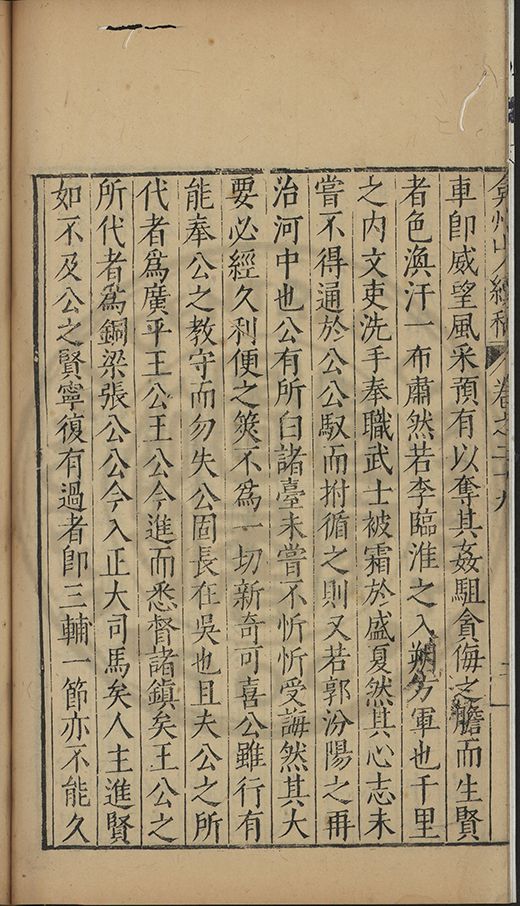 弇州山人續稿 卷之二十九
車卽威望風采預有以奪其姦駔貪侮之膽而生賢
者色渙汗一布肅然若李臨淮之入朔方軍也千里
之内文吏洗手奉職武士被霜於盛夏然其心志未
嘗不得通於公公馭而拊循之則又若郭汾陽之再
治河中也公有所白諸臺未嘗不忻忻受誨然其大
要必經久利便之筴不爲一切新奇可喜公雖行有
能奉公之教守而勿失公固長在吳也且夫公之所
代者爲廣平王公王公今進而悉督諸鎭矣王公之
所代者爲銅梁張公公今入正大司馬矣人主進賢
如不及公之賢寧復有過者卽三輔一節亦不能久